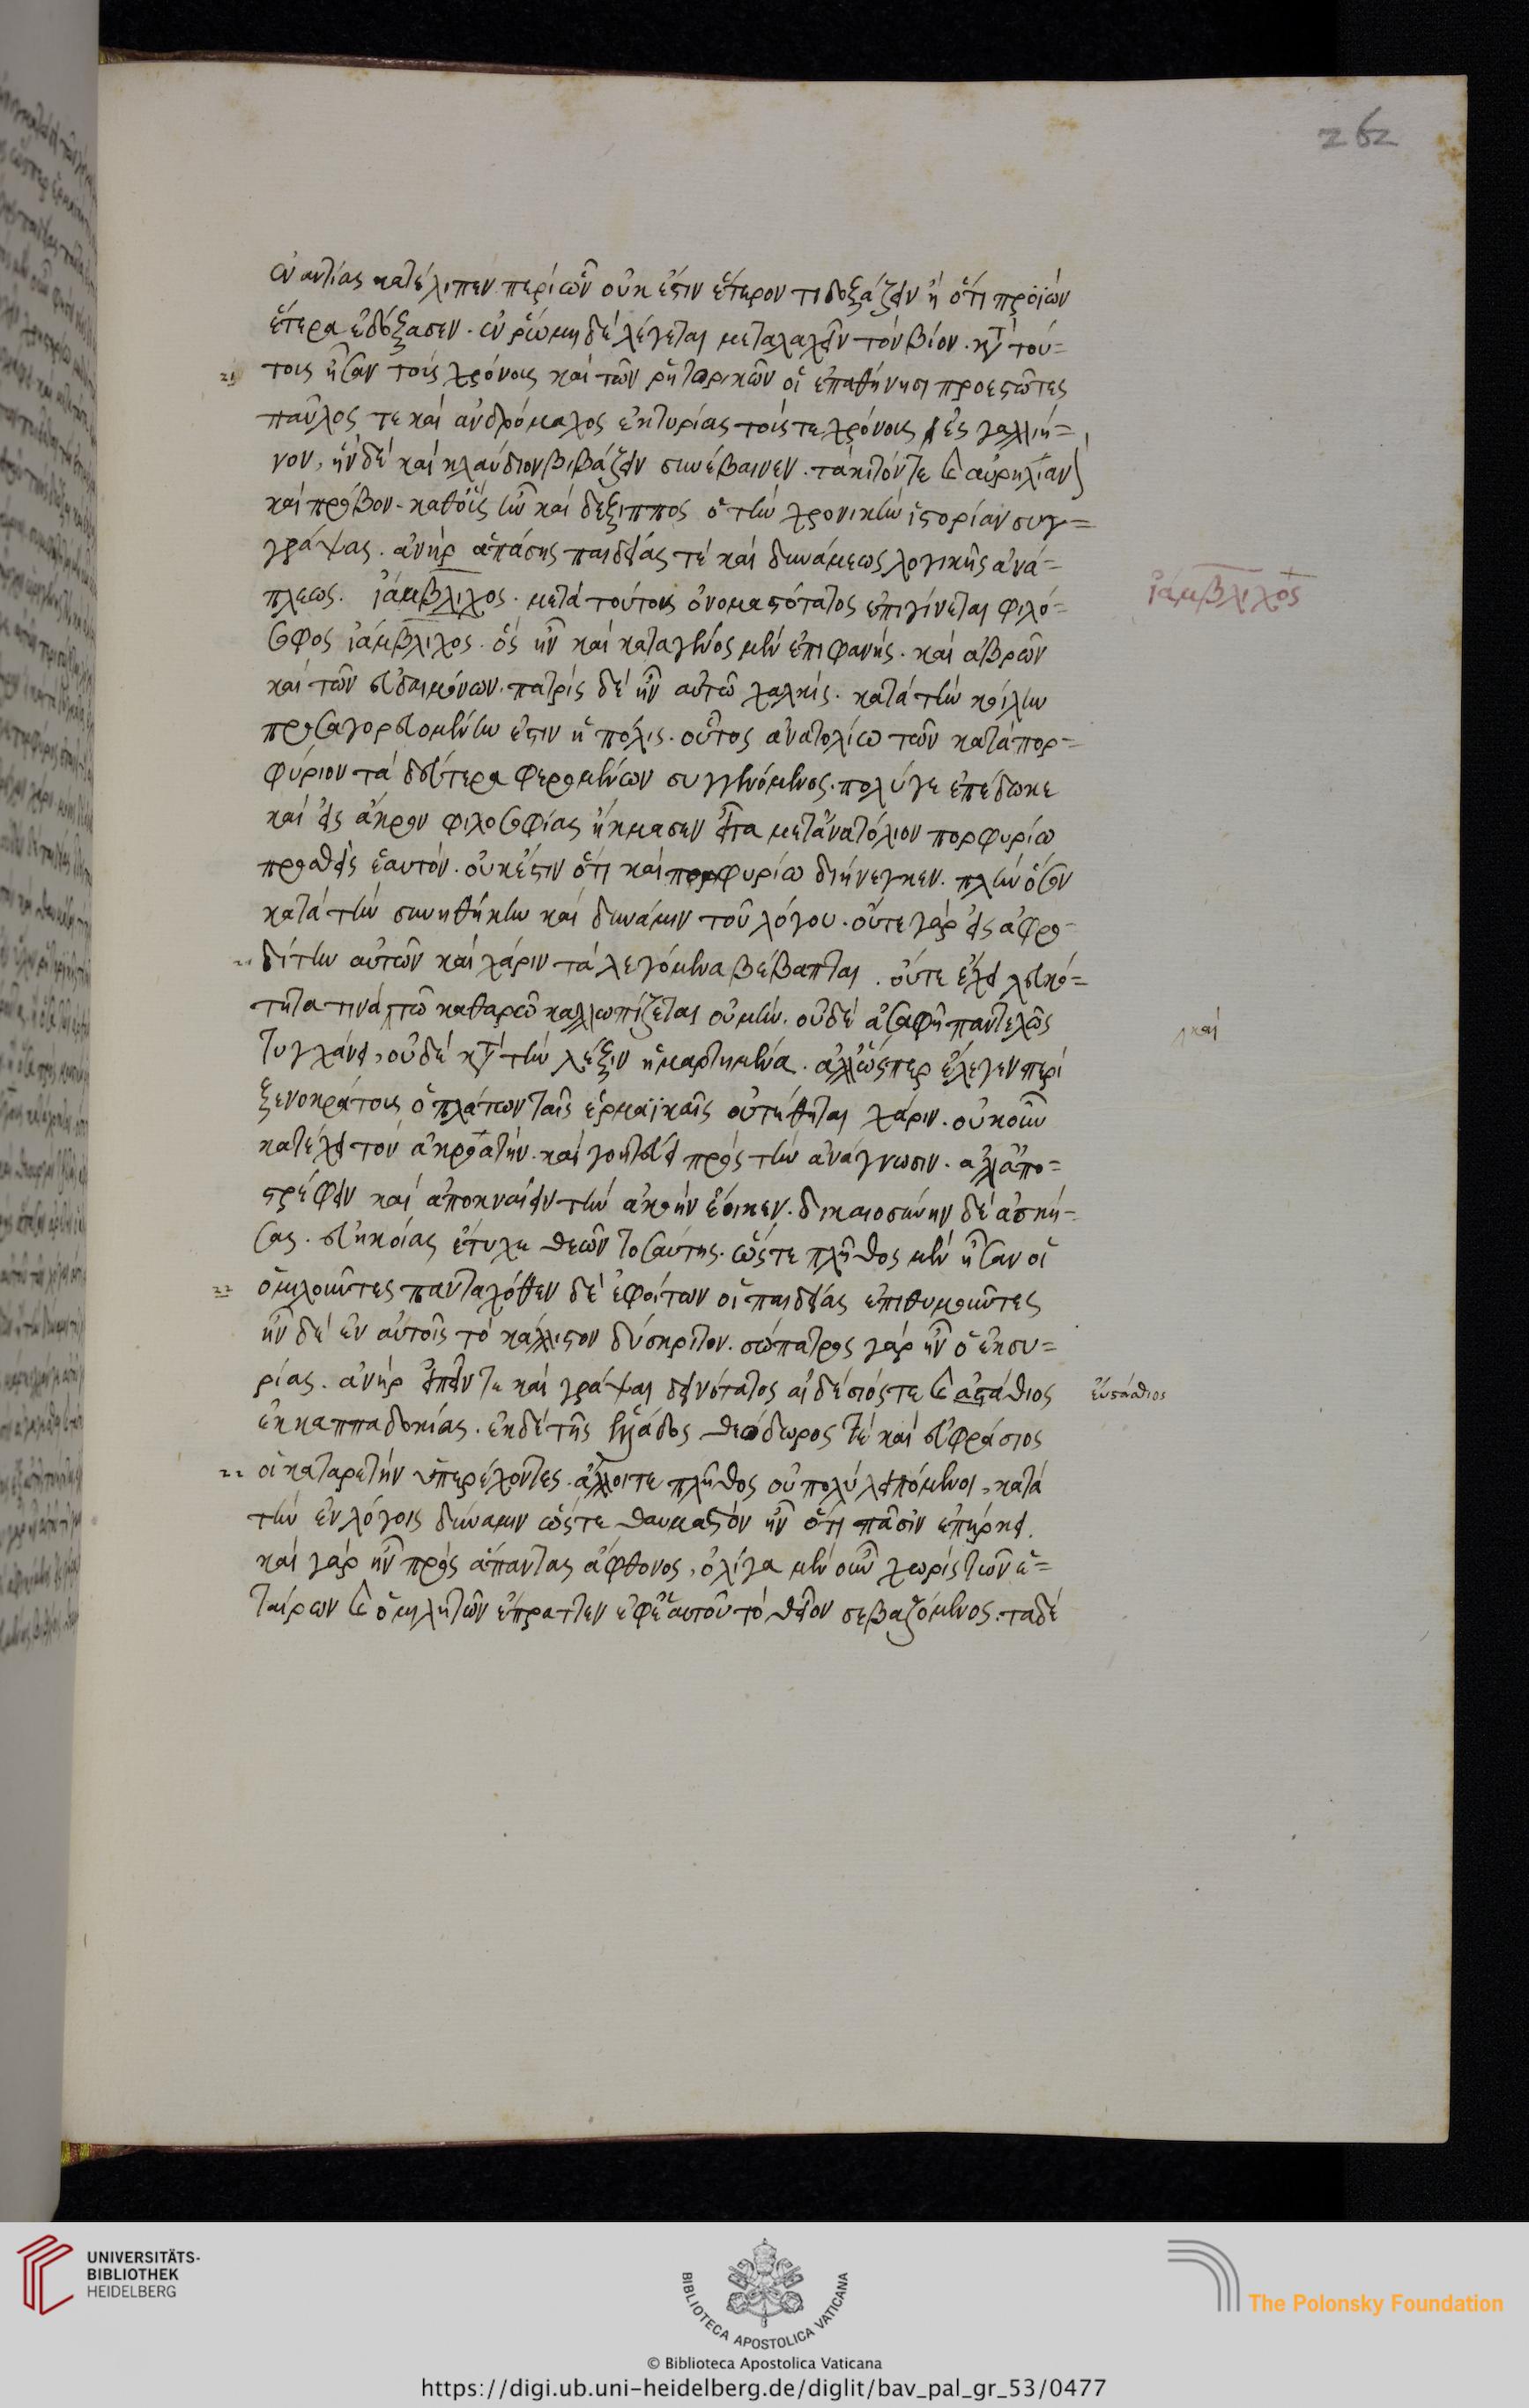 262
ἐναντίας κατέλιπεν περὶ ὧν οὐκ ἔστιν ἕτερον τι δοξάζειν ἢ ὅτι προϊὼν
ἕτερα ἐδόξασεν. ἐν ῥώμη δὲ λέγεται μεταλαχεῖν τὸν βίον. κατὰ τού=
τοις ἦσαν τοῖς χρόνοις καὶ τῶν ῥητορικῶν οἱ ἐπαθήνησι προεστῶτες
παῦλος τε καὶ ἀνδρόμαχος ἐκ συρίας τοῖς τε χρόνοις ἐς γαλλιή=
νον, ἦν δὲ καὶ κλαύδιον βιβάζειν συνέβαινεν. τάκιτόν τε καὶ αὐρηλίαν
καὶ πρόβον. καθ' οἷς ἦν καὶ δέξιππος ὁ τὴν χρονικὴν ἱστορίαν συγ=
γράψας. ἀνὴρ ἁπάσης παιδείας τὲ καὶ δυνάμεως λογικῆς ἀνά=
πλεως. ἰάμβλιχος. μετὰ τούτους ὀνομαστότατος ἐπιγίνεται φιλό=
σοφος ἰάμβλιχος. ὃς ἦν καὶ κατὰ γένος μὲν ἐπιφανής. καὶ ἁβρῶν
καὶ τῶν εὐδαιμόνων. πατρὶς δὲ ἦν αὐτῶ χαλκίς. κατὰ τὴν κοίλην
προσαγορευομένην ἐστιν ἡ πόλις. οὗτος ἀνατολίω τῶν κατὰ πορ=
φύριον τὰ δεύτερα φερομένων συγγενόμενος. πολύ γε ἐπέδωκε
καὶ εἰς ἄκρον φιλοσοφίας ἤκμασεν εἶτα μετ' ἀνατόλιον πορφυρίω
προσθεὶς ἑαυτόν. οὐκ ἔστιν ὅτι καὶ πορφυρίω διήνεγκεν. πλὴν ὅσον
κατὰ τὴν συνθήκην καὶ δύναμιν τοῦ λόγου. οὔτε γὰρ εἰς ἀφρο=
δίτην αὐτῶν καὶ χάριν τὰ λεγόμενα βέβαπται. οὔτε ἔχει λευκό=
τητα τινὰ τῶ καθαρῶ καλλωπίζεται οὐ μὴν. οὐδὲ ἀσαφῆ παντελῶς
τυγχάνει, οὐδὲ κατὰ τὴν λέξιν ἡμαρτημένα. ἀλλ' ὥσπερ ἔλεγεν περὶ
ξενοκράτους ὁ πλάτων ταῖς ἑρμαϊκαῖς οὐ τέθηται χάριν. οὐκ οὖν
κατέχει τὸν ἀκροατὴν. καὶ γοητεύει πρὸς τὴν ἀνάγνωσιν. ἀλλ' ἀπο=
στρέφειν καὶ ἀποκναίειν τὴν ἀκοὴν ἔοικεν. δικαιοσύνην δὲ ἀσκή=
σας. εὐηκοίας ἔτυχε θεῶν τοσαύτης. ὥστε πλῆθος μὲν ἦσαν οἱ
ὁμιλοῦντες πανταχόθεν δὲ ἐφοίτων οἱ παιδείας ἐπιθυμοῦντες
ἦν δὲ ἐν αὐτοῖς τὸ κάλλιστον δύσκριτον. σώπατρος γὰρ ἦν ὁ ἐκ συ=
ρίας. ἀνὴρ εἰπεῖν τε καὶ γράψαι δεινότατος αἰδέσιός τε καὶ ἀστάθιος
ἐκ καππαδοκίας. ἐκ δὲ τῆς ἑλλάδος θεόδωρος τὲ καὶ εὐφράσιος
οἱ κατ' ἀρετὴν ὑπερέχοντες. ἄλλοι τε πλῆθος οὐ πολὺ λειπόμενοι, κατὰ
τὴν ἐν λόγοις δύναμιν ὥστε θαυμαστὸν ἦν ὅτι πᾶσιν ἐπήρκει.
καὶ γὰρ ἦν πρὸς ἅπαντας ἄφθονος, ὀλίγα μὲν οὖν χωρὶς τῶν ἑ=
ταίρων καὶ ὁμιλητῶν ἔπραττεν ἐφ' ἑαυτοῦ τὸ θεῖον σεβαζόμενος. τὰ δὲ
ἰάμβλιχος
καὶ
ἐυστάθιος
21
22
UNIVERSITÄTS-
BIBLIOTHEK
HEIDELBERG
BIBLIOTECA APOSTOLICA VATICANA
The Polonsky Foundation
© Biblioteca Apostolica Vaticana
https://digi.ub.uni-heidelberg.de/diglit/bav_pal_gr_53/0477